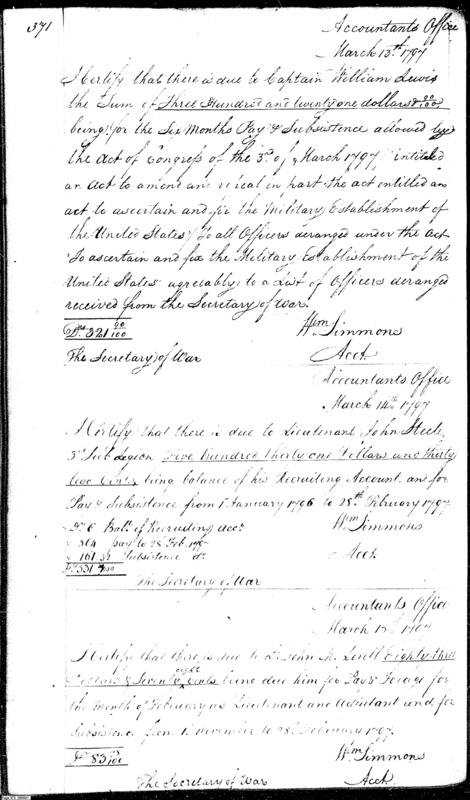 371
Accountants Office
March 13th 1797
I Certify that there is due to Captain William Lewis
the Sum of Three Hundred and twenty one dollars & 90/100
being for the Six Months Pay & Subsistence allowed by
the Act of Congress of the 3d of March 1797, intitled
an Act to amend and repeal in part the act entitled an
act to ascertain and fix the Military Establishment of
the United States" To all Officers deranged under the Act
"To ascertain and fix the Military Establishment of the
United States" agreeably to a List of Officers deranged
received from the Secretary of War.
Drs 321 90/100
Wm Simmons
The Secretary of War
Acct.
Accountants Office
March 14th 1797
I Certify that there is due to Lieutenant John Steele
3d Sub Legion Five hundred thirty one Dollars and thirty
two Cents being balance of his Recruiting Account and for
Pay & Subsistence from 1st January 1796 to 28th February 1797.
6 Bale. of Recruiting acct.
Wm Simmons
364 pay to 28 Feb. 1797
Acct.
161.32 Subsistence do.
The Secretary of War
Accountants Office
March 1797
I Certify that there is due to Lt. John M. Lovell Eighty three
Dollars & Seventy eight Cents being due him for Pay & Forage for
the Month of February as Lieutenant and Adjutant and for
Subsistence from 1st November to 28th February 1797.
Drs 83 78/100
Wm Simmons
The Secretary of War
Acct.